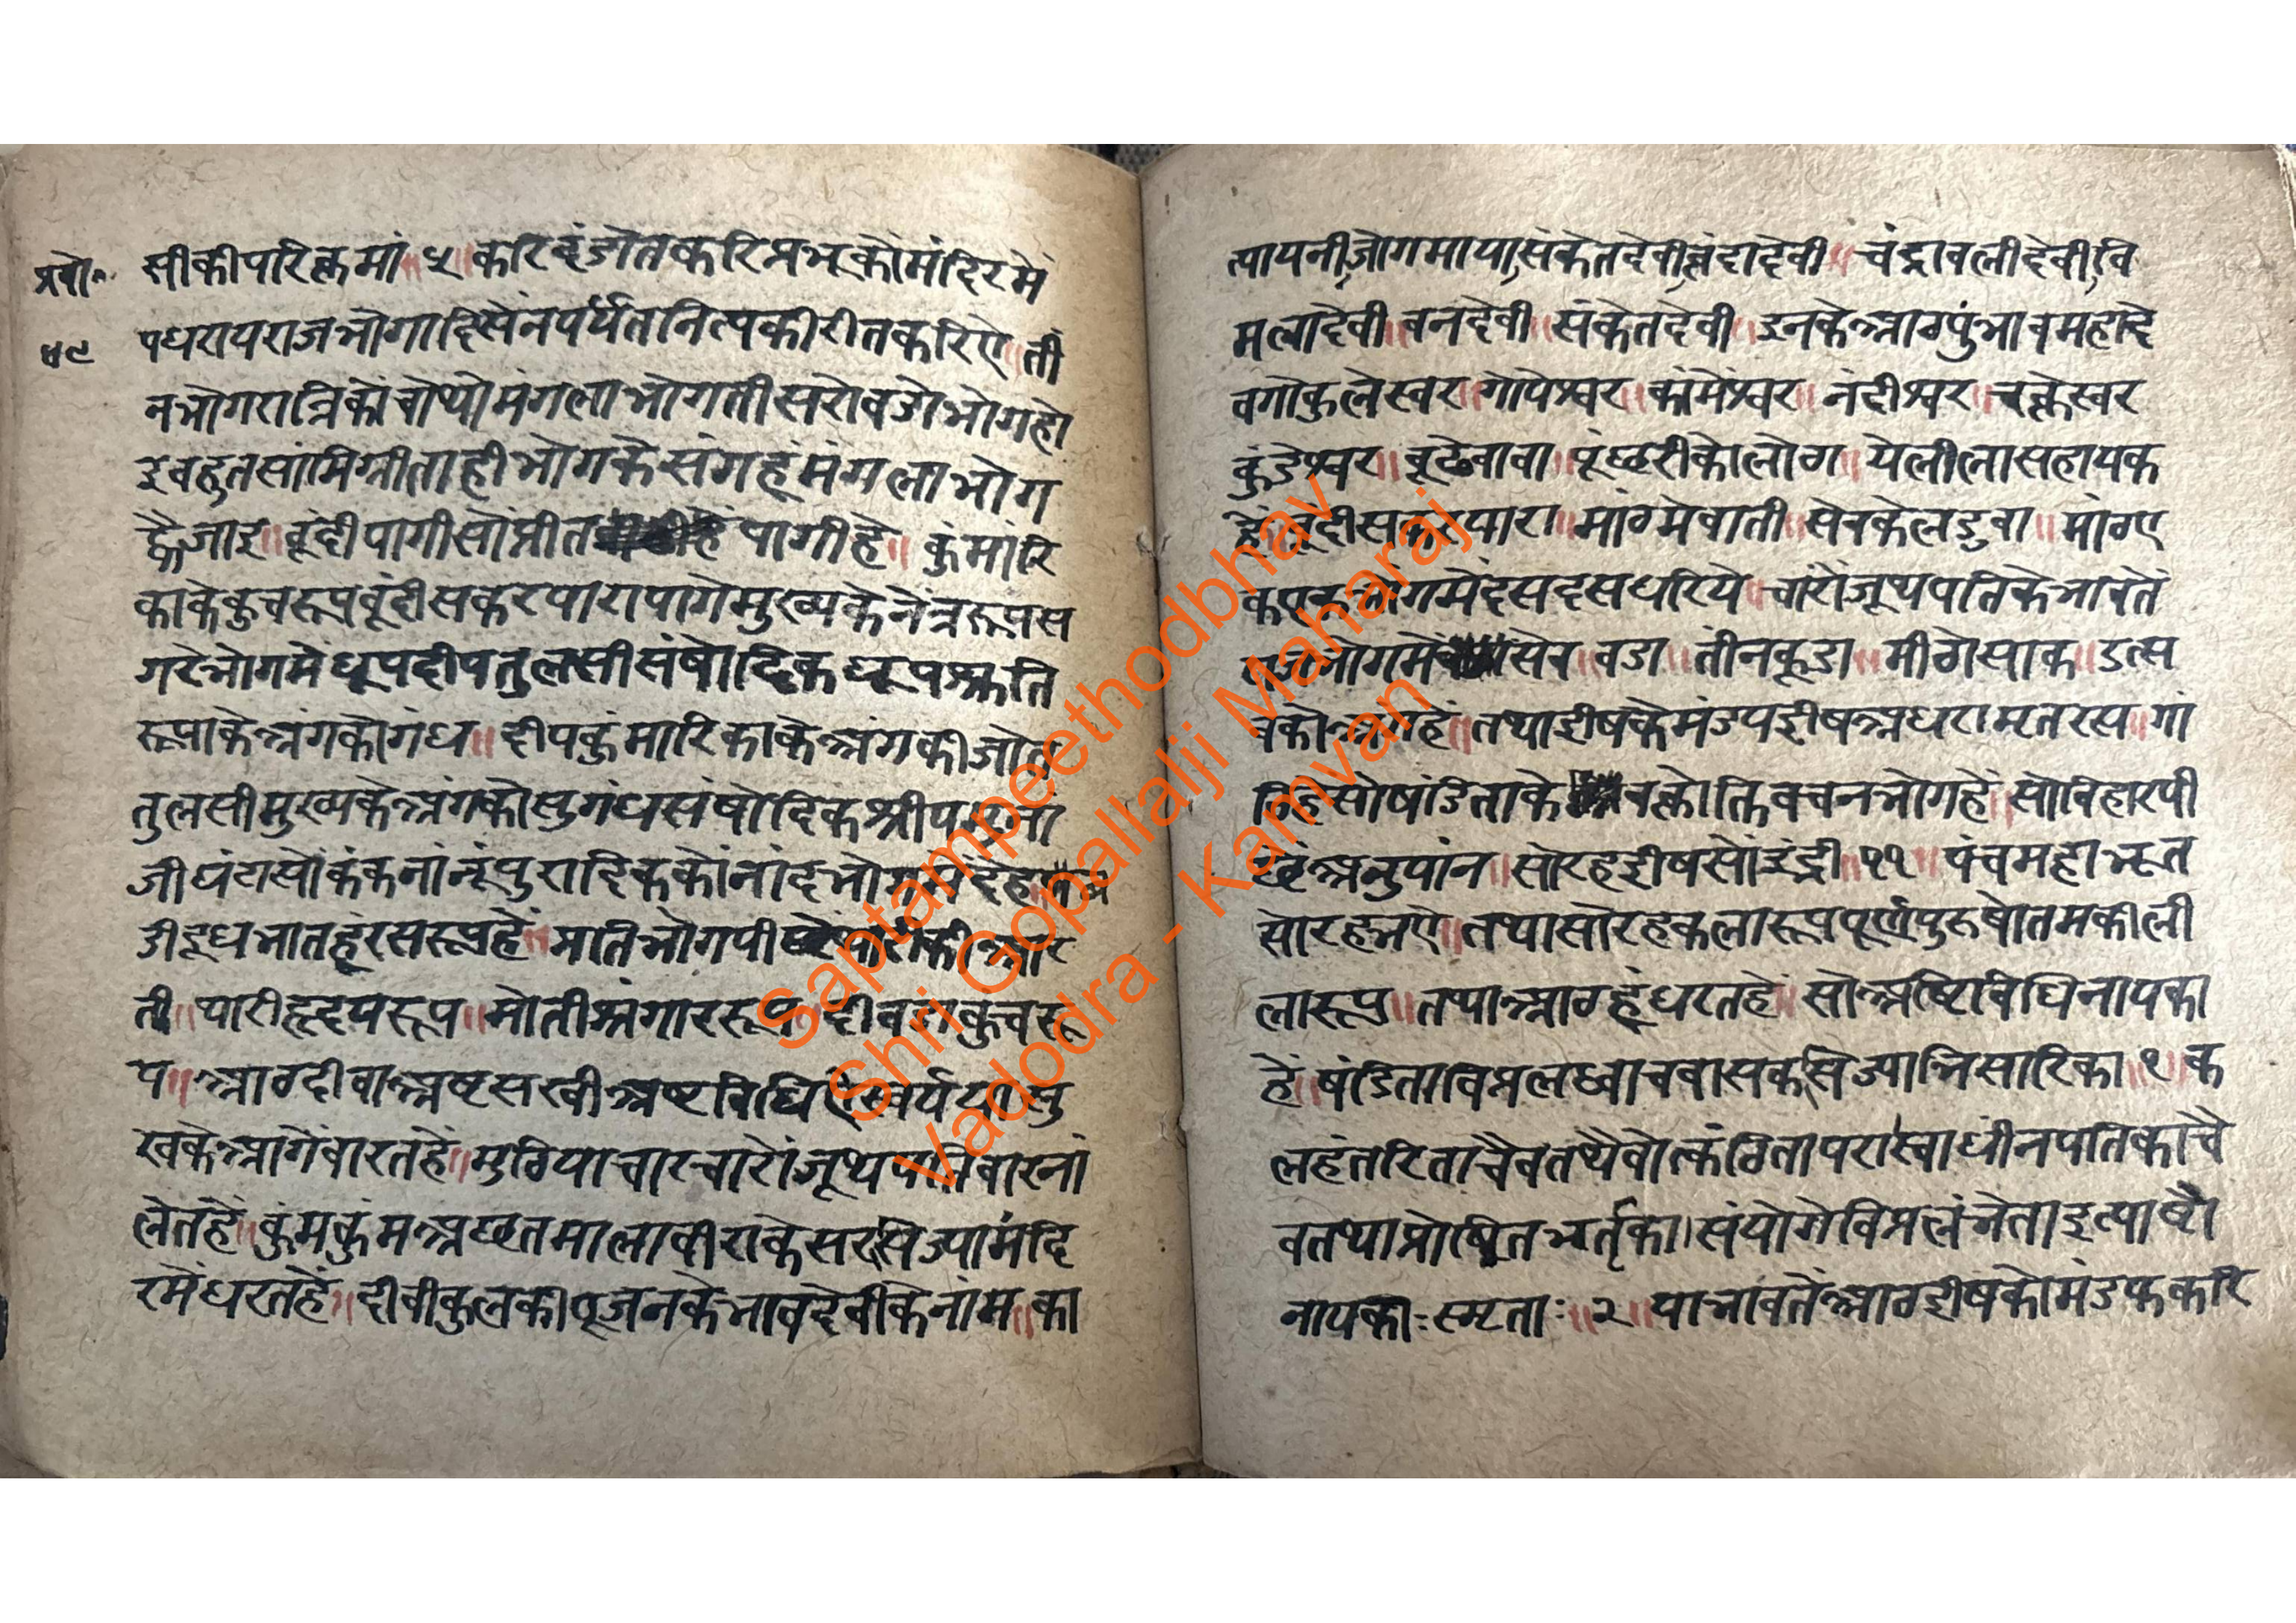 प्रबो॰
५९
सीकीपरिक्रमां ५॥ करिदंडोतकरिप्रभूकोमंदिरमें
पधरायराजभोगादिसेनपर्यंतनित्यकीरीतकरिऐ॥ ती
नभोगरात्रिकोचोथोमंगलाभोगतीसरोवडोभोगहो
इबहुतसांमिग्रीताहीभोगकेसंगहूंमंगलाभोग
ह्वैजाइ॥ बूंदीपागीसोप्रीत पागीहै॥ कुंमारि
काकेकुचरूपबूंदीसकरपारापागेमुख्यकेनेत्ररूपस
गरेभोगमेंधूपदीपतुलसीसंषोदिकधूपश्रुति
रूपाकेअंगकोगंध॥ दीपकुंमारिकाकेअंगकीजोत
तुलसीमुख्यकेअंगकोसुगंधसंषोदिकश्रीयमुना
जीघंटासोकंकनांनूंपुरादिककोंनांदभोगमेंदेहै
डीदूधभातहूंरसरूपहै॥ भातिभोगपी आर
ती॥ थारीहृदयरूप॥ मोतीश्रंगाररूप॥ दीवलाकुचरू
प॥ आठदीवाअष्टसखीअष्टविधिऐस्वर्य मु
खकेआगेवारतहै॥ मुठियाचारचारोंजूथपतिवारनां
लेतहै॥ कुंमकुंमअछतमालाबीराकेसरसिज्यामंदि
रमेंधरतहै॥ दीवीकुलकीपूजनकेभावदेवीकेनांम॥ का
त्यायनीजोगमायासंकेतदेवीवृंदादेवी॥ चंद्रावलीदेवीवि
मलादेवी॥ बनदेवी॥ संकेतदेवी॥ इनकेआठपुंभावमहादे
वगोकुलेस्वर॥ गोपेश्वर॥ कांमेश्वर॥ नंदीश्वर॥ चक्रेस्वर
कुंडेश्वर॥ बूढेबाबा॥ पूंछरीकोलोठा॥ येलीलासहायक
है॥ बूंदीसकरपारा॥ मांठमेवाती॥ सेवकेलडुवा॥ मांठए
कएकभोगमेंदसदसधरिये॥ चारोंजूथपतिकेभावतें
भोगमें सेव॥ वडा॥ तीनकूडा॥ मीठोसाक॥ उत्स
वकोअंगहै॥ तथाद्वीषकेमंडपद्वीषअधरामृतरस॥ गां
ठिहैसोषंडिताके वक्रोक्तिवचनभोगहै॥ सोविहारपी
छेंअनुपांन॥ सोरहद्वीषसोंइंद्री ११॥ पंचमहाभूत
सोरहभऐ॥ तथासोरहकलारूपपूर्णपुरुषोतमकीली
लारूप॥ तथाआठहूंधरतहै॥ सोअष्टविधिनायका
है॥ षंडिताविप्रलब्धाचवासकसिज्याभिसारिका॥ १॥ क
लहंतरिताचैवतथैवोत्कंठितापरास्वाधीनपतिकाचै
वतथाप्रोषितभर्तृका।संयोगेविप्रलंभेताइत्याष्टौ
नायकाः स्मृताः॥ २॥ याभांवतेंआठद्वीषकोमंडफकरि